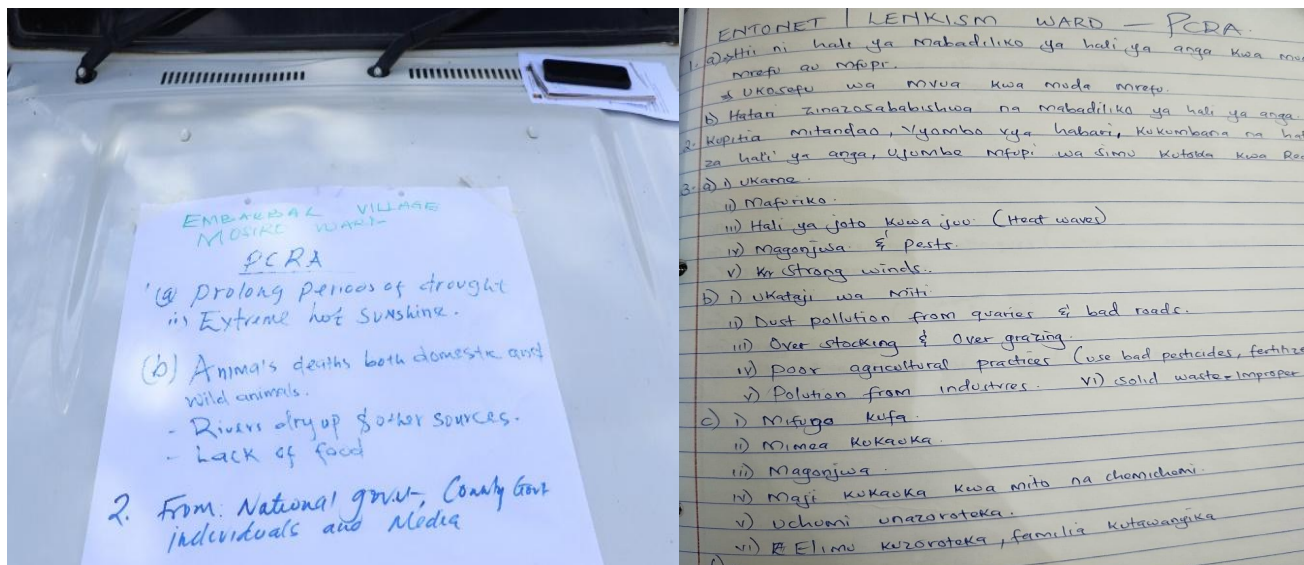 EMBAKBAL VILLAGE
MOSIRO WARD
PCRA
(a) Prolong periods of drought
ii) Extreme hot sunshine.
(b) Animals deaths both domestic and
wild animals.
- Rivers dry up & other sources.
- Lack of food
2. From: National govt, County Govt
individuals and Media
ENTONET | LENKISM WARD — PCRA.
1. a) Hii ni hali ya mabadiliko ya hali ya anga kwa
mrefu au mfupi.
Ukosefu wa mvua kwa muda mrefu.
b) Hatari zinazosababishwa na mabadiliko ya hali ya anga.
2. Kupitia mitandao, vyombo vya habari, kukumbana na
za hali ya anga, ujumbe mfupi wa simu kutoka kwa
3. a) i) Ukame.
ii) Mafuriko.
iii) Hali ya joto kuwa juu. (Heat waves)
iv) Magonjwa & Pests.
v) Strong winds.
b) i) Ukataji wa miti
ii) Dust pollution from quaries & bad roads.
iii) Over stocking & Over grazing.
iv) Poor agricultural practices (use bad pesticides,
v) Polution from industries. vi) Solid waste - Improper
c) i) Mifugo kufa.
ii) Mimea kukauka.
iii) Magonjwa.
iv) Maji kukauka kwa mito na chemichemi.
v) Uchumi unazoroteka.
vi) Elimu kuzoroteka, familia kutawanyika